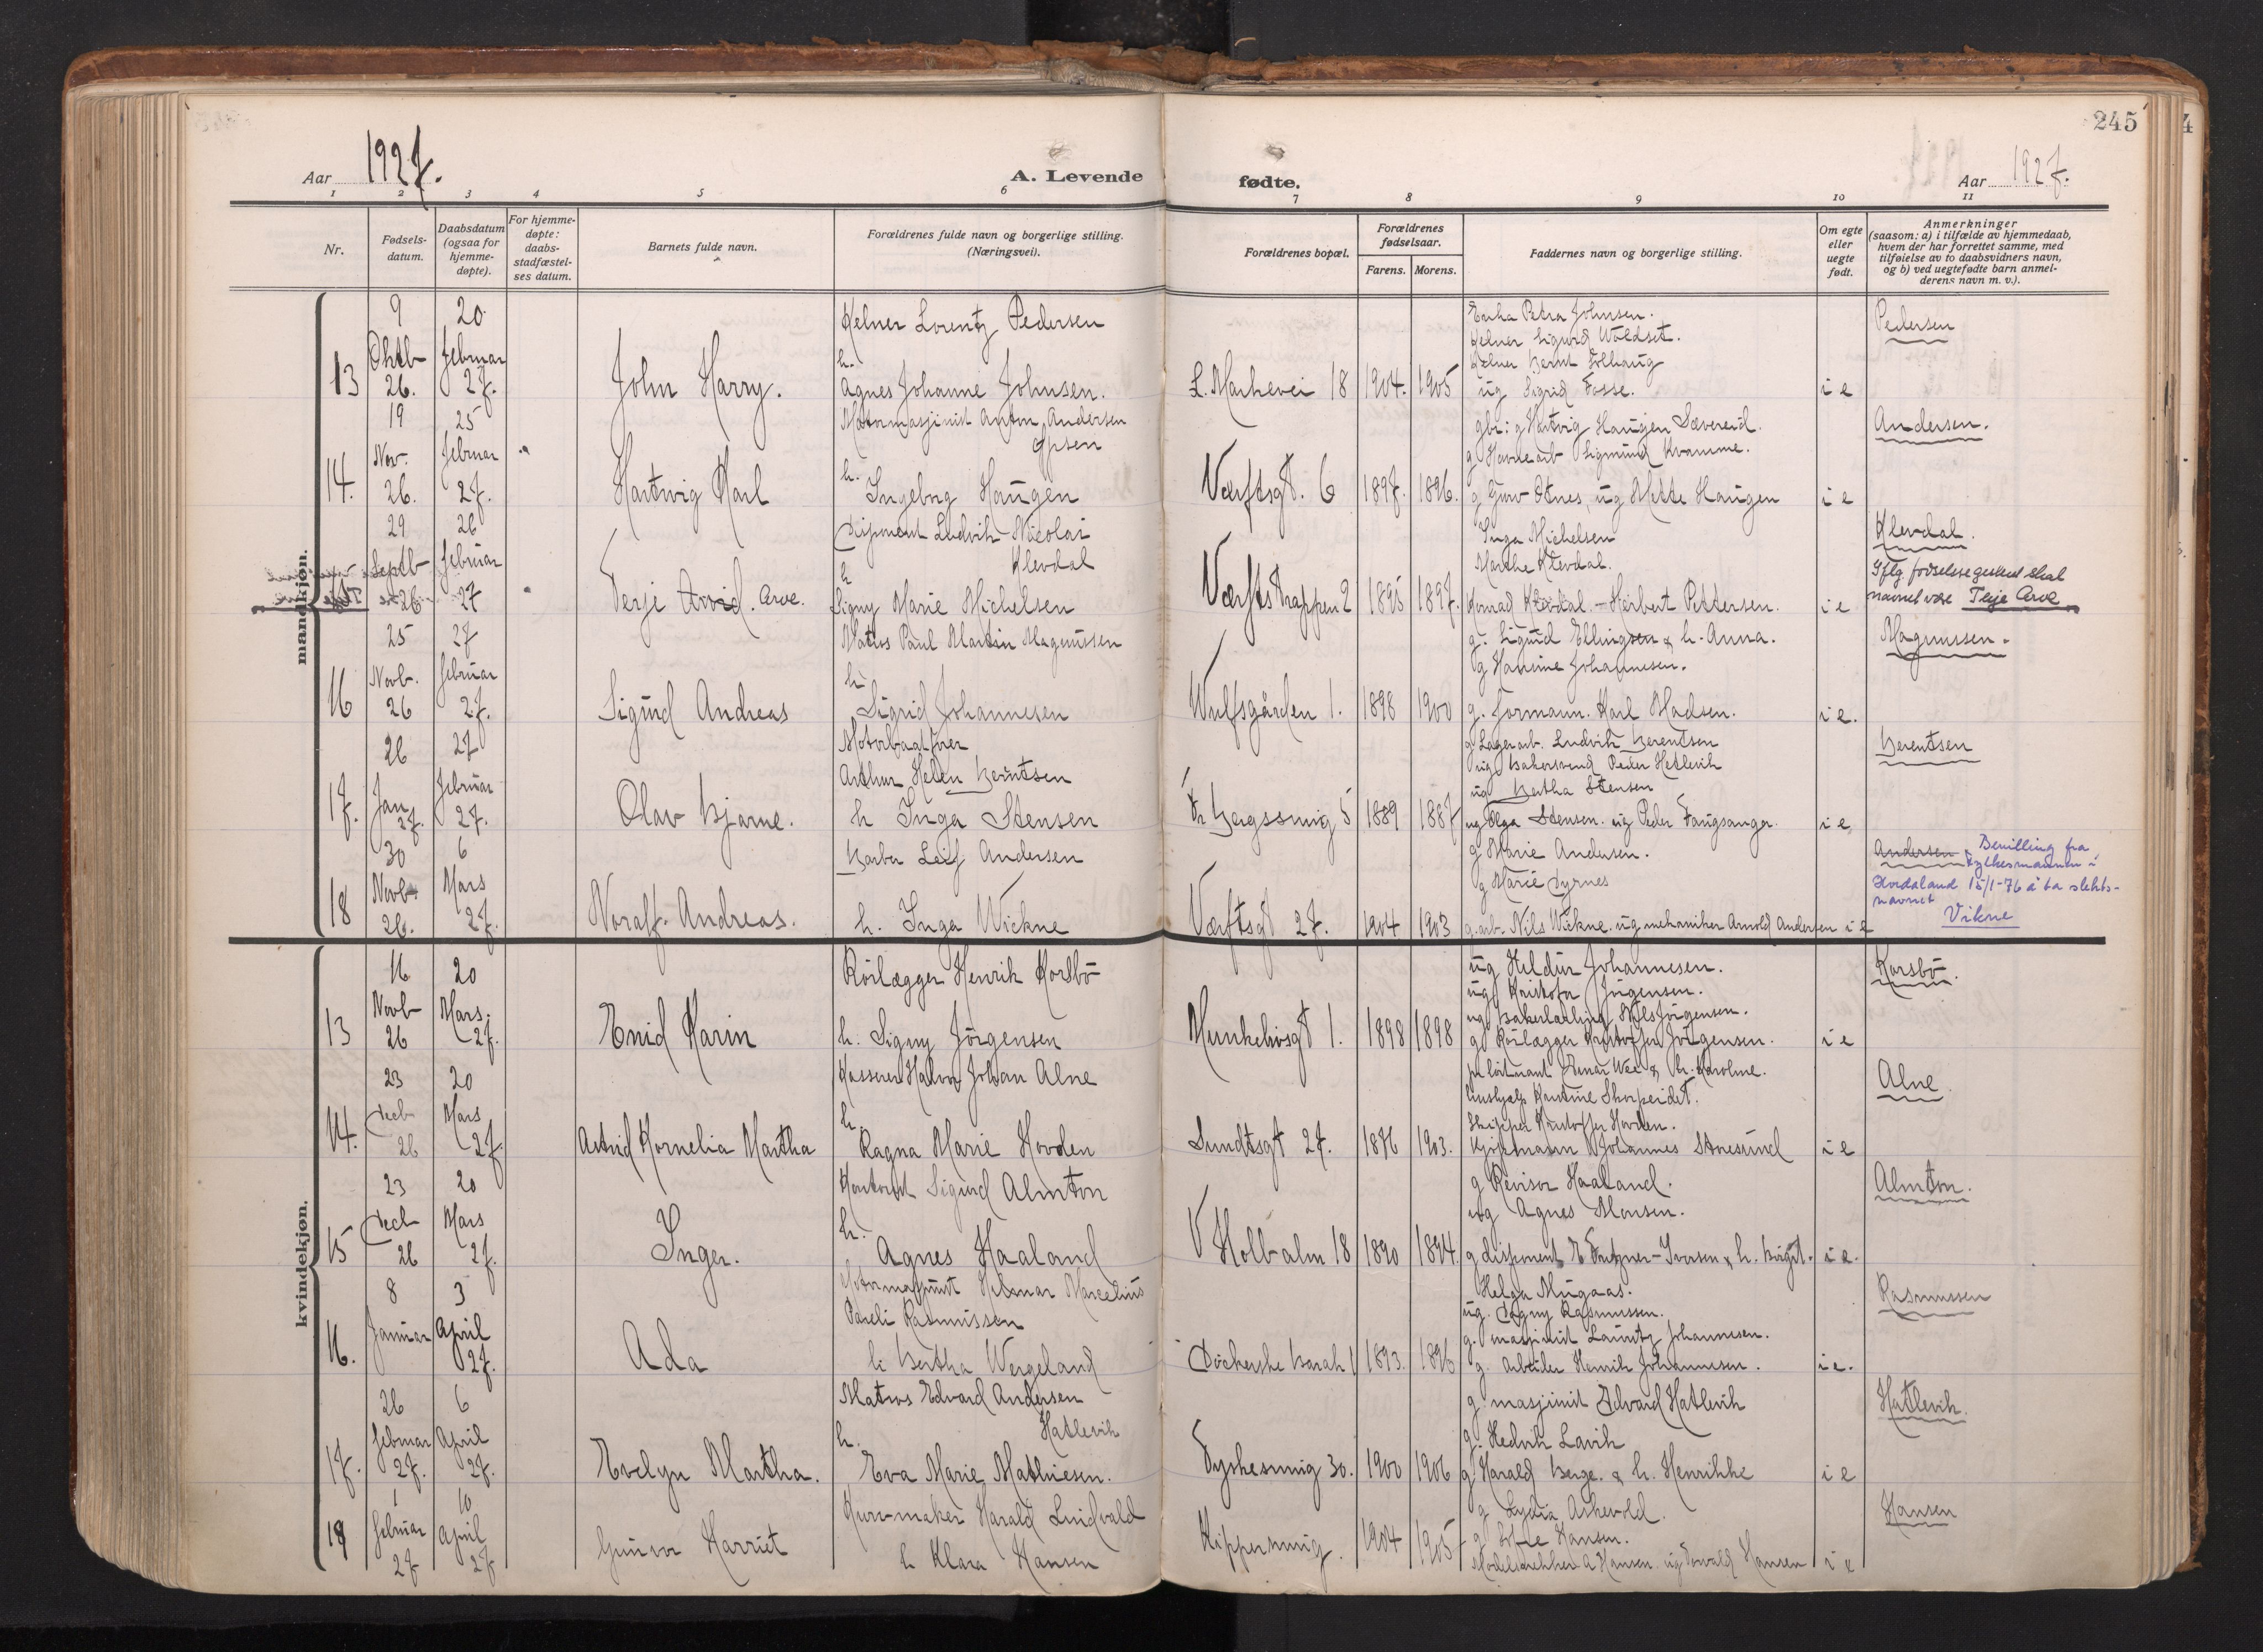 245
Aar 1927.
A. Levende
fødte.
Aar 1927.
1 2 3 4 5 6 7 8 9 10 11
Nr.
Fødsels-
datum.
Daabsdatum
(ogsaa for
hjemme-
døpte).
For hjemme-
døpte:
daabs-
stadfæstel-
ses datum.
Barnets fulde navn.
Forældrenes fulde navn og borgerlige stilling.
(Næringsvei).
Forældrenes bopæl.
Forældrenes
fødselsaar.
Farens. Morens.
Faddernes navn og borgerlige stilling.
Om egte
eller
uegte
født.
Anmerkninger
(saasom: a) i tilfælde av hjemmedaab,
hvem der har forrettet samme, med
tilføielse av to daabsvidners navn,
og b) ved uegtefødte barn anmel-
derens navn m. v.).
mandkjøn.
13
9
Oktb
26.
20
februar
27.
John Harry.
Kelner Lorentz Pedersen
h.
Agnes Johanne Johnsen.
L. Markevei 18
1904. 1905
Petra Johnsen.
Kelner Sigurd Woldset.
Kelner Bernt Solhaug
ug Sigrid Fosse.
i e
Pedersen
14.
19
Nov.
26.
25
februar
27.
Hartvig Karl
Motormasjinist Anton Andersen
h.
Ingeborg Haugen
Værftsgt. 6
1897. 1896.
gbr: g Hartvig Haugen Sævereid.
g Havnearb Sigmund Kvamme.
g Otnes, ug Mette Haugen
i e
Andersen.
29
Septb
26
26
februar
27
Terje Arvid. Arve.
Disponent Ludvik Nicolai
Klevdal
h
Signy Marie Michelsen
Værftstrappen 2
1895 1897.
Inga Michelsen
Marthe Klevdal.
Konrad Klevdal - Herbert Pettersen.
i e
Klevdal.
Iflg. fødselsregisteret skal
navnet være Terje Arve
16
25
Novb.
26
27
februar
27.
Sigurd Andreas
Matros Paul Martin Magnussen
h
Sigrid Johannesen
Wulfsgården 1.
1898 1900
g. Sigurd Ellingsen & h. Anna.
g Hansine Johannesen.
g. formann. Karl Madsen.
i e.
Magnussen.
17.
26
Jan
27.
27
februar
27.
Olav Bjarne.
Motorbaatfører
Arthur Helen Berntsen
h Inga Stensen
Bergssmug 5
1889 1887
g Lagerarb. Ludvik Berentsen
ug Bakersvend Peder Hetlevik
ug Bertha Stensen
ug Olga Stensen. ug Peder Fangsanger.
i e
Berentsen
18
30
Novb
26.
6
Mars
27.
Noralf. Andreas.
Barber Leif Andersen
h. Inga Wickne
Værftsgt 27.
1904 1903
g Marie Andersen.
g Marie Dyrnes
g. arb. Nils Wickne. ug mekaniker Arnold Andersen
i e
Andersen Bevilling fra
Fylkesmannen i
Hordaland 15/1-76 å ta slekts-
navnet
Vikne
kvindekjøn.
13
16
Novb
26
20
Mars.
27.
Enid Karin
Rörlægger Henrik Korsbö
h. Signy Jörgensen
Munkebrogt 1.
1898 1898
ug Heldur Johannesen.
ug Kristofa Jörgensen.
ug Bakerlærling Nils Jörgensen.
g Rörlægger Kristoffer Jörgensen.
i e
Korsbö.
14.
23
Decb
26
20
Mars
27
Astrid Kornelia Martha
Kasserer Halvor Johan Alne
h.
Ragna Marie Hovden
Sundtsgt 27.
1876 1903.
premierløitnant Einar Wee & h. Karoline.
hushjelp Kristine Skorpeidet.
Skipper Kristoffer Hovden.
Kjöpmann Johannes Storesund
i e
Alne.
15
23
Decb
26
20
Mars
27.
Inger.
Kontorist Sigurd Almton
h.
Agnes Haaland
V Holbalm 18
1890 1894.
g Revisor Haaland.
ug Agnes Monsen.
g disponent E -Iversen & h. Birgit.
i e.
Almton.
16.
8
Januar
3
April
27.
Ada
Motormasjinist Hilmar Marcelius
Pareli Rasmussen
h Bertha Wergeland
Döckerske barak 1
1893. 1896
Helga Mugaas.
ug. Dagny Rasmussen.
g. masjinist Lauritz Johannesen.
g. arbeider Henrik Johannesen.
i e.
Rasmussen
17.
26
februar
27.
6
April
27.
Evelyn Martha.
Matros Edvard Andersen
Hatlevik
h.
Eva Marie Mathiesen.
Tyskesmug 30.
1900 1906
g. masjinist Edvard Hatlevik
g. Hedvik Lavik
g. Harald Berge. & h. Henrikke
i e
Hatlevik.
18
1
februar
27
10
April
27
Gunvor Harriet
Kurvmaker Harald Lindvald
h Klara Hansen
Kippersmug.
1904 1905
g Lydia Askevold.
g Sofie Hansen.
Modelsnekker A Hansen. ug Hansen
i e
Hansen